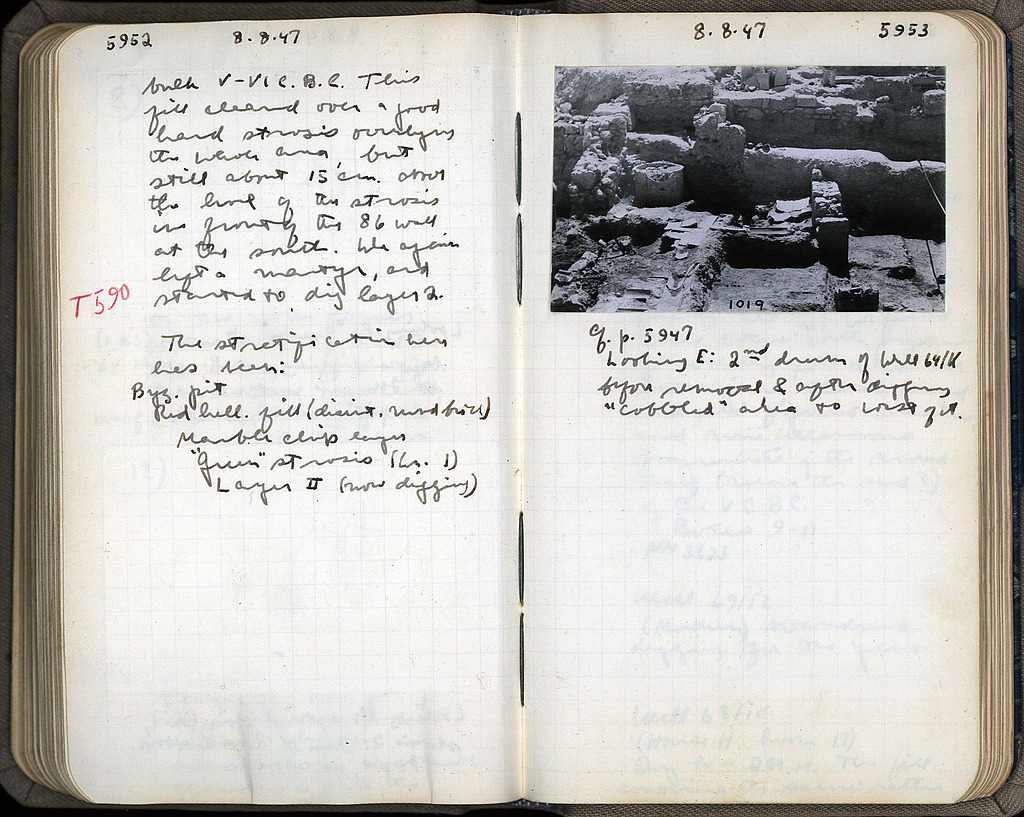 5952 8.8.47
bulk V-VI C. B.C. This
fill cleared over a good
hard strosis overlying
the whole area, but
still about 15 cm. above
the level of the strosis
in front of the 86 wall
at the south. We again
left a martyr, and
started to dig layer 2.
T 590
The stratification here
has been:
Byz. pit
Red hell. fill (disint. mud brick)
Marble chip layer
"Green" strosis (Lr. 1)
Layer II (now digging)
8.8.47 5953
1019
Cf. p. 5947
Looking E: 2nd drum of Well 64/
before removal & after digging
"cobbled" area to west of it.